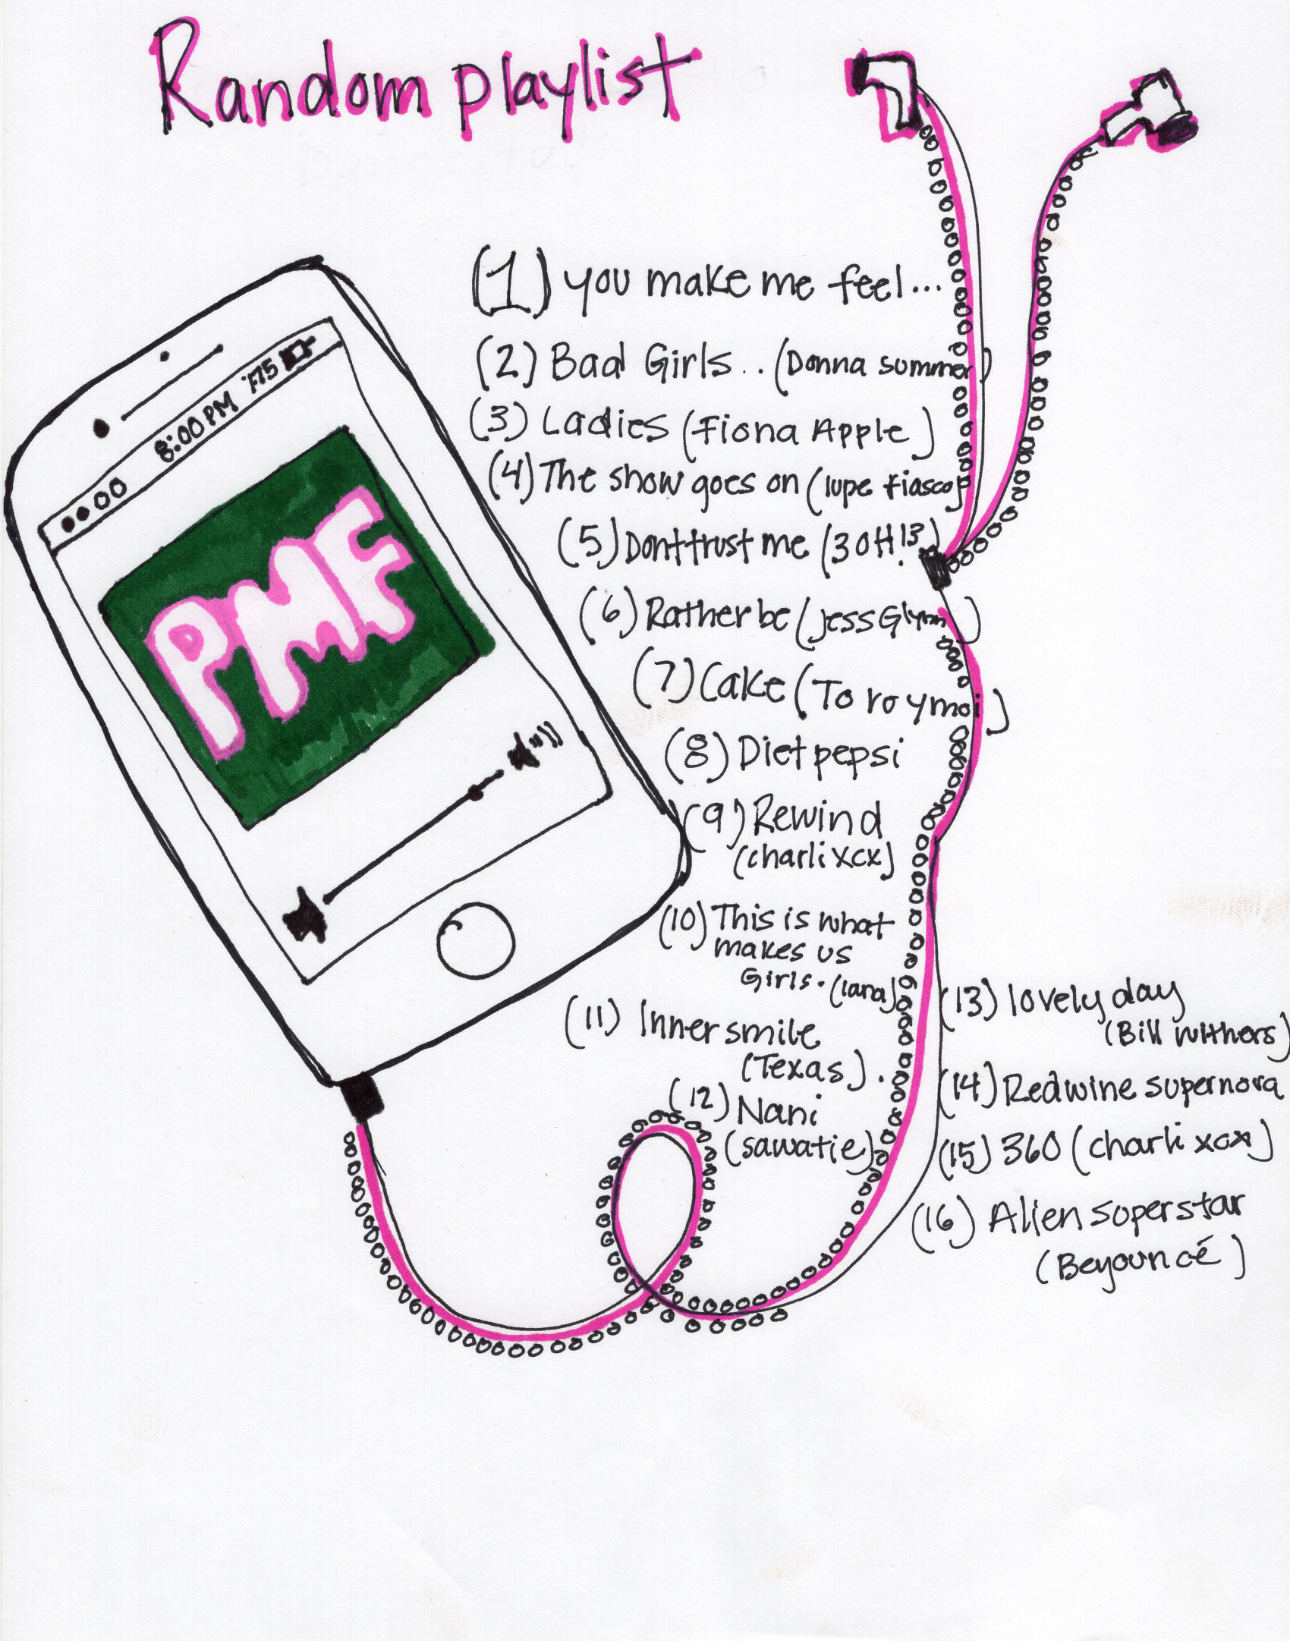 Random playlist
(1) you make me feel...
(2) Bad Girls .. (Donna summer)
(3) Ladies (Fiona Apple)
(4) The show goes on (lupe fiasco)
(5) Dont trust me (3OH!3)
(6) Rather be (Jess Glynn)
(7) Cake (To ro y moi)
(8) Diet pepsi
(9) Rewind
(charli xcx)
(10) This is what
makes us
Girls. (lana)
(11) Inner smile
(Texas).
(12) Nani
(sawatie)
(13) lovely day
(Bill withers)
(14) Red wine supernova
(15) 360 (charli xcx)
(16) Alien superstar
(Beyouncé)
8:00PM
PMF